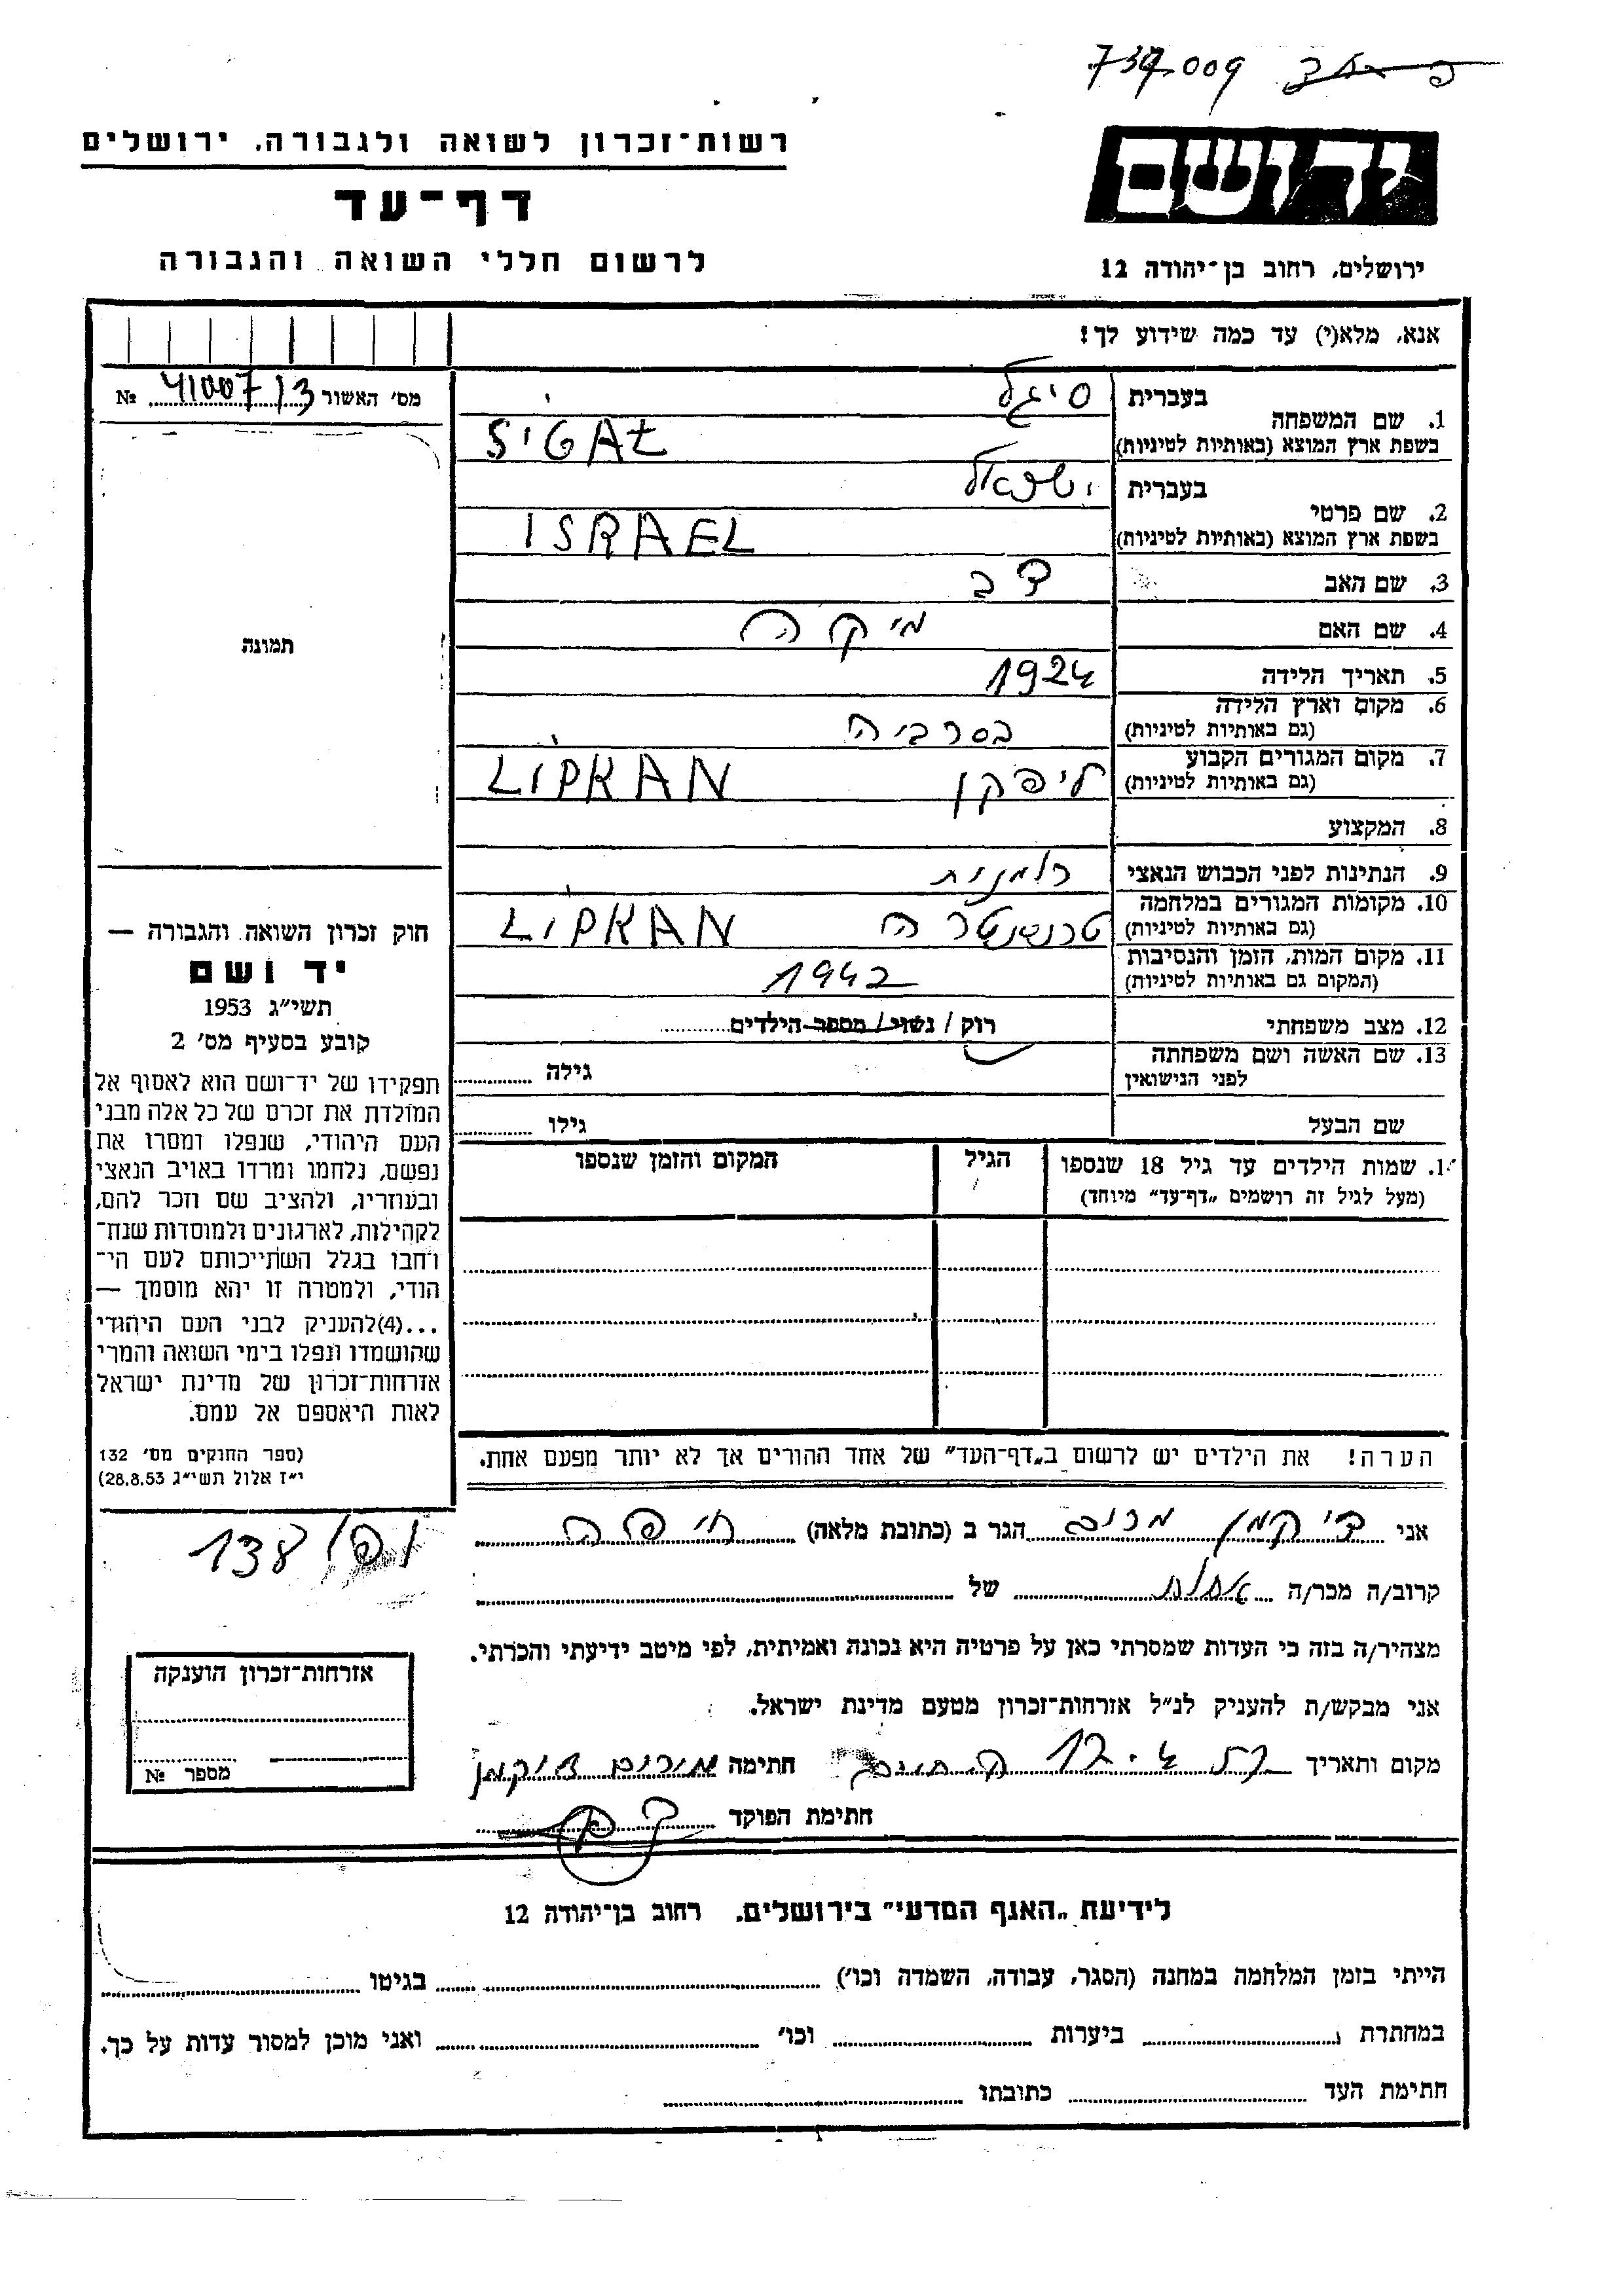 737.009
רשות־זכרון לשואה ולגבורה, ירושלים
דף־עד
לרשום חללי השואה והגבורה
יד ושם
ירושלים, רחוב בן־יהודה 12
אנא, מלא(י) עד כמה שידוע לך!
מס׳ האשור 41007/3 №
תמונה
1. שם המשפחה
בעברית סיגל
בשפת ארץ המוצא (באותיות לטיניות) SIGAL
2. שם פרטי
בעברית ישראל
בשפת ארץ המוצא (באותיות לטיניות) ISRAEL
3. שם האב דב
4. שם האם מיקה
5. תאריך הלידה 1924
6. מקום וארץ הלידה
(גם באותיות לטיניות) בסרביה
7. מקום המגורים הקבוע
(גם באותיות לטיניות) ליפקן LIPKAN
8. המקצוע
9. הנתינות לפני הכבוש הנאצי
10. מקומות המגורים במלחמה
(גם באותיות לטיניות) LIPKAN
11. מקום המות, הזמן והנסיבות
(המקום גם באותיות לטיניות) 1942
12. מצב משפחתי רוק / נשוי / מספר הילדים
13. שם האשה ושם משפחתה
לפני הנישואין גילה
שם הבעל גילו
1. שמות הילדים עד גיל 18 שנספו
(מעל לגיל זה רושמים „דף־עד״ מיוחד)
הגיל
המקום והזמן שנספו
הערה! את הילדים יש לרשום ב„דף־העד״ של אחד ההורים אך לא יותר מפעם אחת.
חוק זכרון השואה והגבורה —
יד ושם
תשי״ג 1953
קובע בסעיף מס׳ 2
תפקידו של יד־ושם הוא לאסוף אל
המולדת את זכרם של כל אלה מבני
העם היהודי, שנפלו ומסרו את
נפשם, נלחמו ומרדו באויב הנאצי
ובעוזריו, ולהציב שם וזכר להם,
לקהילות, לארגונים ולמוסדות שנח־
רחבו בגלל השתייכותם לעם הי־
הודי, ולמטרה זו יהא מוסמך —
...(4)להעניק לבני העם היהודי
שהושמדו ונפלו בימי השואה והמרי
אזרחות־זכרון של מדינת ישראל
לאות היאספם אל עמם.
(ספר החוקים מס׳ 132
י״ז אלול תשי״ג 28.8.53)
138
אני דיקמן מרים הגר ב (כתובת מלאה) חיפה
קרוב/ה מכר/ה אחות של
מצהיר/ה בזה כי העדות שמסרתי כאן על פרטיה היא נכונה ואמיתית, לפי מיטב ידיעתי והכרתי.
אני מבקש/ת להעניק לנ״ל אזרחות־זכרון מטעם מדינת ישראל.
מקום ותאריך חתימה מרים דיקמן
חתימת הפוקד
אזרחות־זכרון הוענקה
מספר №
לידיעת „האגף המדעי״ בירושלים, רחוב בן־יהודה 12
הייתי בזמן המלחמה במחנה (הסגר, עבודה, השמדה וכו׳) בגיטו
במחתרת ביערות וכו׳ ואני מוכן למסור עדות על כך.
חתימת העד כתובתו